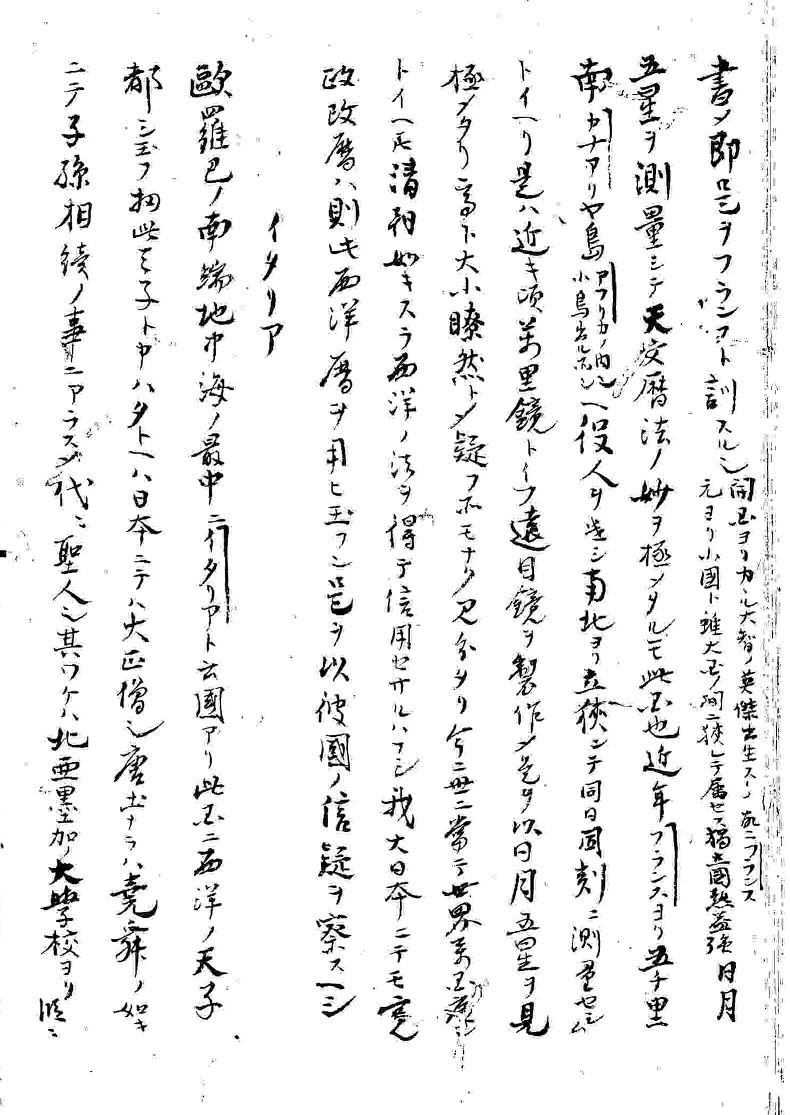 書メ即是ヲフランスト訓スルシ 同国ヨリカヽル大智ノ英傑出生スル故ニフランス
元ヨリ小国ト雖大国ノ間ニ狹レテ属セス独立国勢益強 日月
五星ヲ測量シテ天文暦法ノ妙ヲ極メタルモ此国也近年フランスヨリ五千里
南カナアリヤ島 アフリカノ内ニ
小島 ヘ役人ヲ差シ南北ヨリ立狹ンテ同日同刻ニ測量セシム
トイヘリ是ハ近キ頃萬里鏡トイフ遠目鏡ヲ製作メ是ヲ以日月五星ヲ見
極メタリ高下大小瞭然トメ疑フ所モナク見分タリ今ニ世ニ當テ世界萬国
トイヘモ清朝如キスラ西洋ノ法ヲ得テ信用セサルハナシ我大日本ニテモ寛
政改暦ハ則此西洋暦ヲ用ヒ玉フ是ヲ以彼國ノ信疑ヲ察スヘシ
イタリア
歐羅巴ノ南端地中海ノ最中ニイタリアト云國アリ此国ニ西洋ノ天子
都シ玉フ扨此天子ト申ハタトヘハ日本ニテハ大正僧也唐土ナラハ堯舜ノ如キ
ニテ子孫相續ノ事ニアラス代々聖人也其ワケハ北亜墨加ノ大學校ヨリ